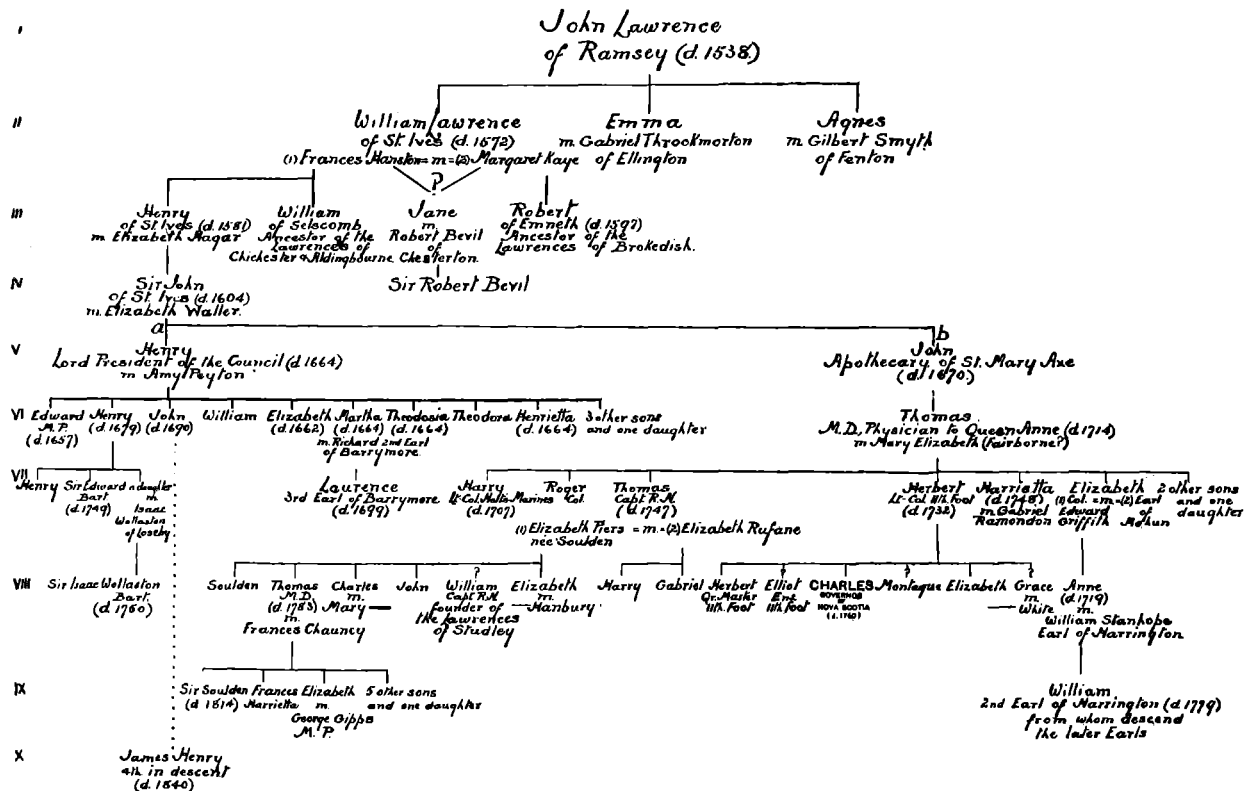 I
John Lawrence
of Ramsey (d. 1538.)
II
William Lawrence
of St. Ives (d. 1572)
(1) Frances Hanston = m = (2) Margaret Kaye
Emma
m Gabriel Throckmorton
of Ellington
Agnes
m Gilbert Smyth
of Fenton
?
III
Henry
of St Ives (d. 1581)
m Elizabeth Hagar
William
of Selscomb
Ancestor of the
Lawrences of
Chichester & Aldingbourne
Jane
m
Robert Bevil
of
Chesterton.
Robert
of Emneth (d. 1597)
Ancestor of the
Lawrences of Brokedish.
IV
Sir John
of St. Ives (d. 1604)
m. Elizabeth Waller.
Sir Robert Bevil
a
b
V
Henry
Lord President of the Council (d 1664)
m Amy Peyton
John
Apothecary of St. Mary Axe
(d. 1670.)
VI
Edward
M.P.
(d. 1657)
Henry
(d. 1679)
John
(d. 1690)
William
Elizabeth
(d. 1662)
Martha
(d. 1664)
m. Richard 2nd Earl
of Barrymore
Theodosia
(d. 1664)
Theodora
Henrietta
(d. 1664)
3 other sons
and one daughter
Thomas
M.D., Physician to Queen Anne (d. 1714)
m Mary Elizabeth (Fairborne?)
VII
Henry
Sir Edward
Bart
(d. 1749)
a daughter
m.
Isaac
Wollaston
of Loseby
Laurence
3rd Earl of Barrymore
(d. 1699)
Harry
Lt-Col. Holt's Marines
(d. 1707)
Roger
Col.
Thomas
Capt R.N.
(d. 1747)
(1) Elizabeth Piers = m = (2) Elizabeth Rufane
née Soulden
Herbert
Lt-Col 11th Foot
(d. 1732)
Harrietta
(d. 1748)
m Gabriel
Ramondon
Elizabeth
(1) Col. = m = (2) Earl
Edward of
Griffith Mohun
2 other sons
and one
daughter
VIII
Sir Isaac Wollaston
Bart.
(d 1750)
Soulden
Thomas
M.D.
(d. 1783)
m.
Frances Chauncy
Charles
m.
Mary
John
?
William
Capt R.N.
founder of
the Lawrences
of Studley
Elizabeth
m.
Hanbury
Harry
Gabriel
Herbert
Qr. Master
11th. Foot
Elliot
Ens
11th. Foot
CHARLES
GOVERNOR
OF
NOVA SCOTIA
(d. 1760)
?
Montague
Elizabeth
?
Grace
m.
White
Anne
(d. 1719)
m.
William Stanhope
Earl of Harrington
IX
Sir Soulden
(d 1814)
Frances
Harrietta
Elizabeth
m.
George Gipps
M.P.
5 other sons
and one daughter
William
2nd Earl of Harrington (d. 1779)
from whom descend
the later Earls
X
James Henry
4th in descent
(d. 1840)